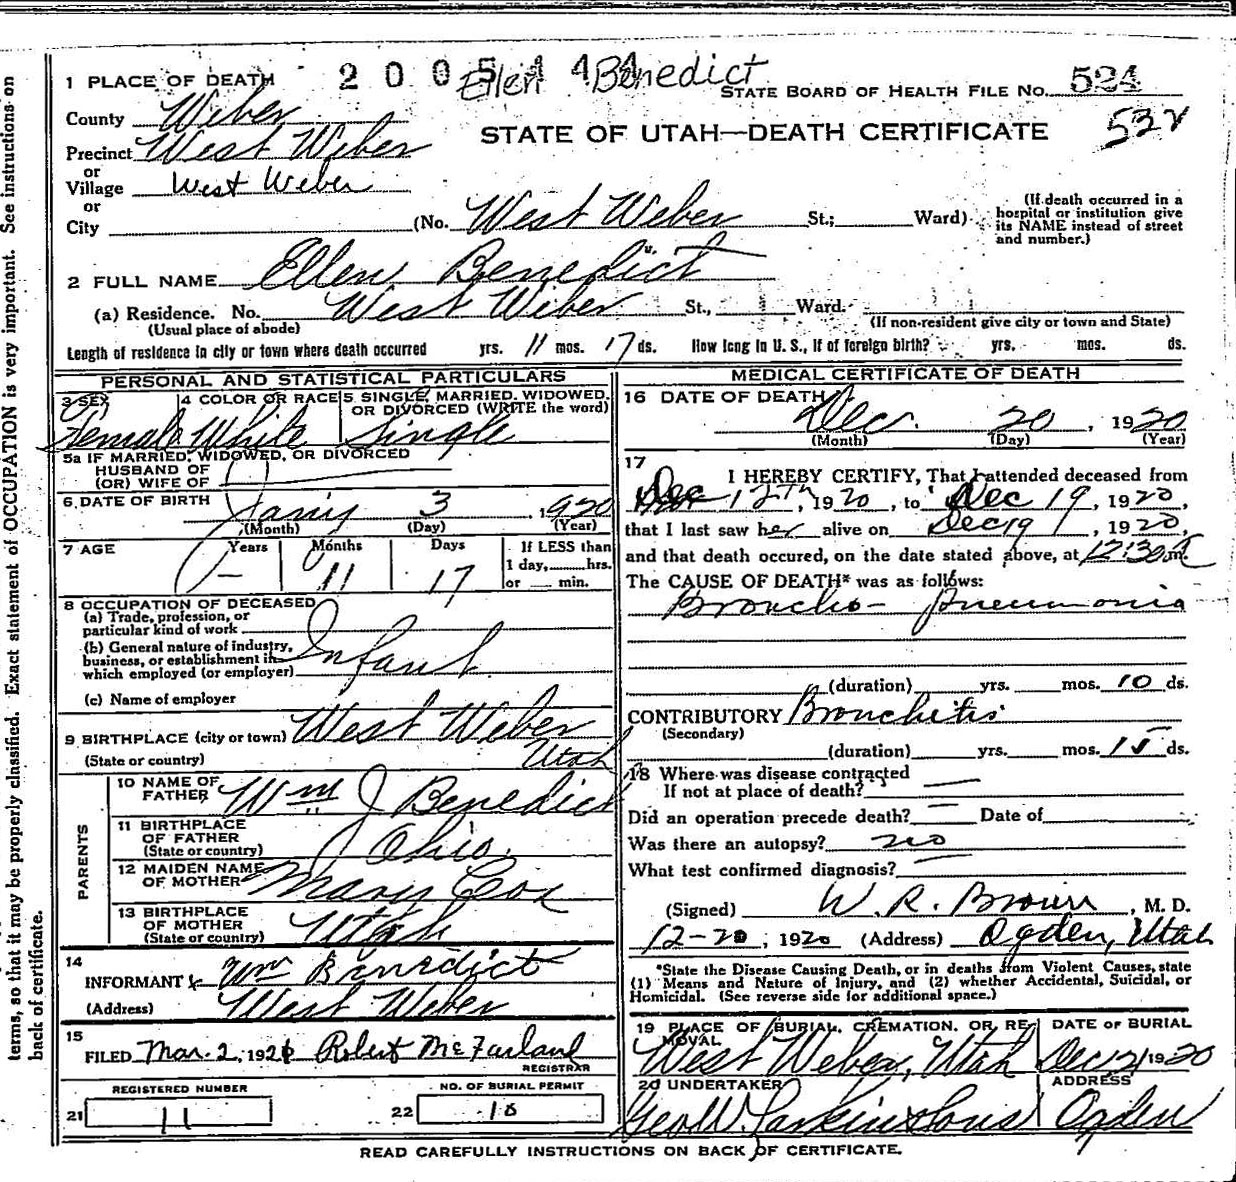 terms, so that it may be properly classified. Exact statement of OCCUPATION is very important. See instructions on
back of certificate.
2005144
Ellen Benedict
1 PLACE OF DEATH
STATE BOARD OF HEALTH FILE NO. 524
County Weber
STATE OF UTAH—DEATH CERTIFICATE
532
Precinct West Weber
or
Village West Weber
or
City (No. West Weber St.; Ward)
(If death occurred in a
hospital or institution give
its NAME instead of street
and number.)
2 FULL NAME Ellen Benedict
(a) Residence. No. West Weber St., Ward.
(Usual place of abode)
(If non-resident give city or town and State)
Length of residence in city or town where death occurred yrs. 11 mos. 17 ds. How long in U. S., if of foreign birth? yrs. mos. ds.
PERSONAL AND STATISTICAL PARTICULARS
3 SEX
Female
4 COLOR OR RACE
White
5 SINGLE, MARRIED, WIDOWED,
OR DIVORCED (WRITE the word)
Single
5a IF MARRIED, WIDOWED, OR DIVORCED
HUSBAND OF
(OR) WIFE OF
6 DATE OF BIRTH Jany 3, 1920
(Month) (Day) (Year)
7 AGE
Years Months Days
— 11 17
If LESS than
1 day, hrs.
or min.
8 OCCUPATION OF DECEASED
(a) Trade, profession, or
particular kind of work
(b) General nature of industry,
business, or establishment in
which employed (or employer)
Infant
(c) Name of employer
9 BIRTHPLACE (city or town) West Weber
(State or country) Utah
PARENTS
10 NAME OF
FATHER Wm J Benedict
11 BIRTHPLACE
OF FATHER
(State or country) Ohio.
12 MAIDEN NAME
OF MOTHER Mary Cox
13 BIRTHPLACE
OF MOTHER
(State or country) Utah
14
INFORMANT Wm Benedict
(Address) West Weber
15
FILED Mar. 2, 1921 Robert McFarland
REGISTRAR
REGISTERED NUMBER
21 11
NO. OF BURIAL PERMIT
22 10
MEDICAL CERTIFICATE OF DEATH
16 DATE OF DEATH
Dec. 20, 1920
(Month) (Day) (Year)
17
I HEREBY CERTIFY, That I attended deceased from
Dec 12th, 1920, to Dec 19, 1920,
that I last saw her alive on Dec 19, 1920,
and that death occured, on the date stated above, at 12:30 a m.
The CAUSE OF DEATH* was as follows:
Broncho-Pneumonia
(duration) yrs. mos. 10 ds.
CONTRIBUTORY Bronchitis
(Secondary)
(duration) yrs. mos. 15 ds.
18 Where was disease contracted
If not at place of death? —
Did an operation precede death? — Date of
Was there an autopsy? no
What test confirmed diagnosis? —
(Signed) W. R. Brown, M. D.
12-20, 1920 (Address) Ogden, Utah
*State the Disease Causing Death, or in deaths from Violent Causes, state
(1) Means and Nature of Injury, and (2) whether Accidental, Suicidal, or
Homicidal. (See reverse side for additional space.)
19 PLACE OF BURIAL, CREMATION, OR RE-
MOVAL
West Weber, Utah
DATE OF BURIAL
Dec 21 1920
20 UNDERTAKER
Geo W. Larkin & Sons
ADDRESS
Ogden
READ CAREFULLY INSTRUCTIONS ON BACK OF CERTIFICATE.